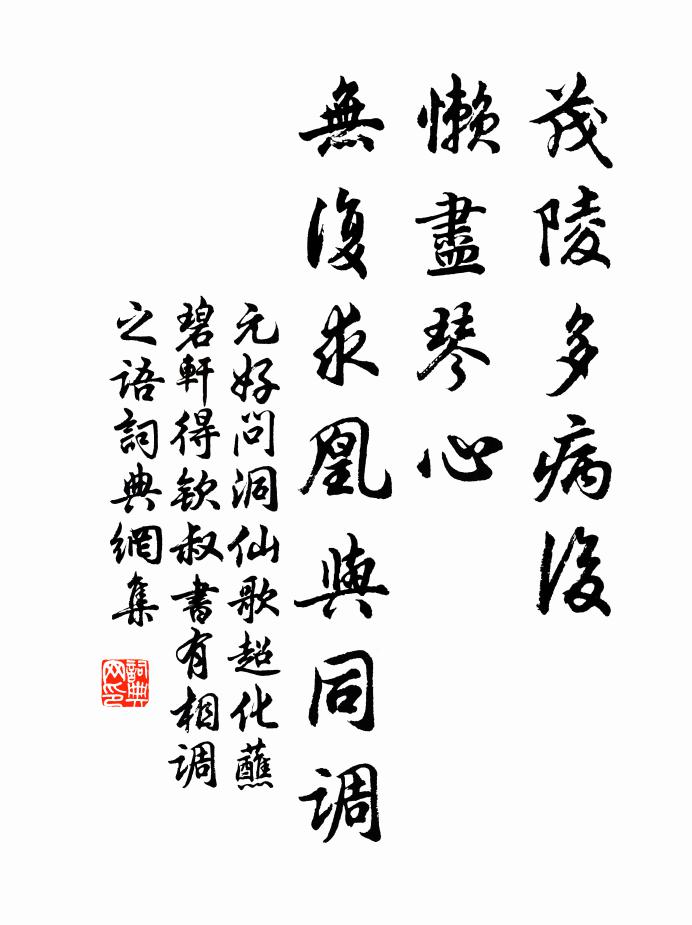 茂陵多病後
懶盡琴心
無復求凰與同调
元好问洞仙歌超化蘸
碧軒得欽叔書有相调
之语詞典網集
詞典网印